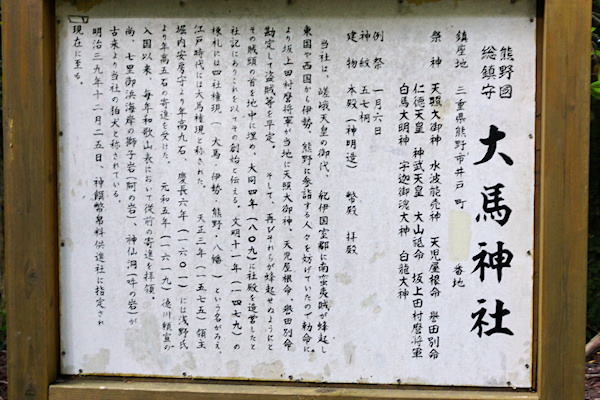 熊野國
総鎮守
大馬神社
鎮座地 三重県熊野市井戸町 番地
祭神 天照大御神 水波能売神 天児屋根命 誉田別命
仁徳天皇 神武天皇 大山祗命 坂上田村麿将軍
白馬大明神 宇迦御魂大神 白龍大神
例祭 一月六日
神紋 五七桐
建物 本殿(神明造) 幣殿 拝殿
当社は、嵯峨天皇の御代、紀伊国室郡に南蛮夷賊が蜂起し
東国や西国から伊勢、熊野に参詣する人々を妨げていたので勅命に
より坂上田村麿将軍が当地に天照大御神、天児屋根命、誉田別命
勘定して盗賊等を平定。そして、再びそれらが蜂起せぬようにと
その賊頭の首を地中に埋め、大同四年(八〇九)に社殿を造営したと
社記にありこれを以てその創始と伝える。文明十一年(一四七九)の
棟札には四社権現(大馬・伊勢・熊野・八幡)という名がみえ、
江戸時代には大馬権現と称された。天正三年(一五七五)領主
堀内安房守より年高九石、慶長六年(一六〇一)には浅野氏
より年高五石の寄進を受けた。元和五年(一六一九)徳川頼宣の
入国以来、毎年和歌山表において従前の寄進を拝領
尚、七里御浜海岸の獅子岩(阿の岩)、神仙洞(吽の岩)が
古来より当社の狛犬と称されている。
明治三九年十二月二五日、神饌幣帛料供進社に指定され
現在に至る。